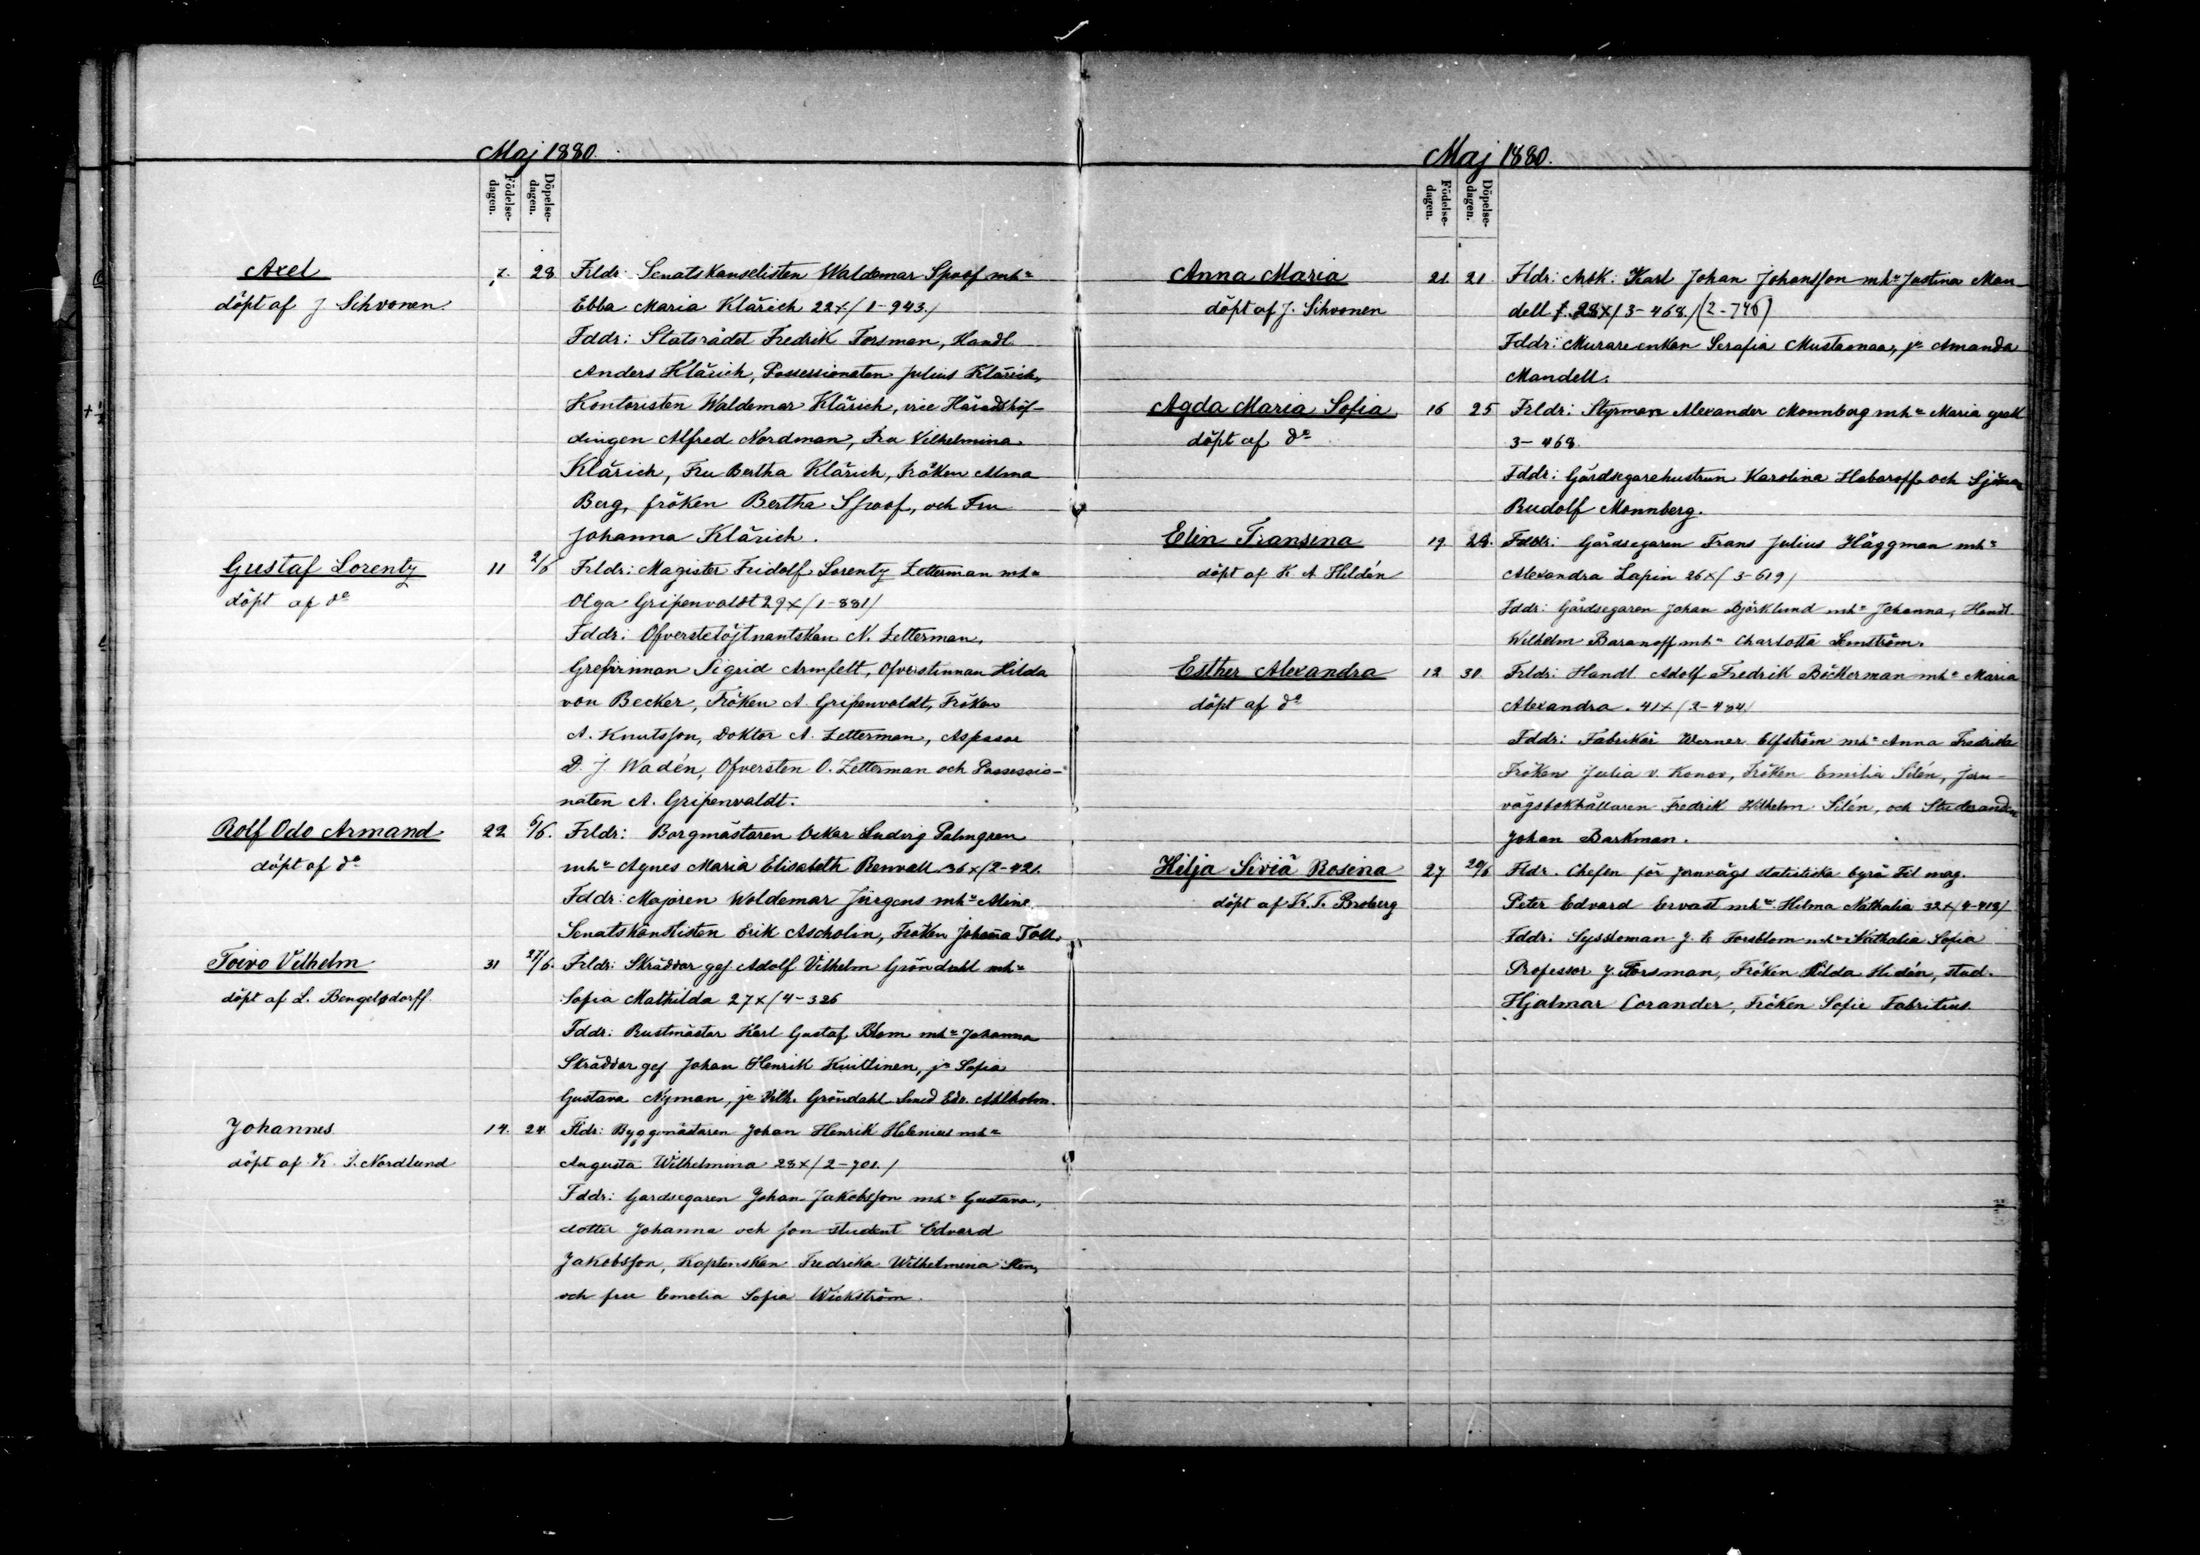 Maj 1880.
Födelse-
dagen.
Döpelse-
dagen.
Axel
döpt af J. Sihvonen.
7. 28 Frldr: Senatskanselisten Waldemar Spoof mhu
Ebba Maria Klärich 22x/1-943./
Fddr: Statsrådet Fredrik Forsman, Handl.
Anders Klärich, Possessionaten Julius Klärich,
Kontoristen Waldemar Klärich, vice Häradshöf-
dingen Alfred Nordman, Fru Vilhelmina
Klärich, Fru Bertha Klärich, Fröken Alma
Berg, fröken Bertha Spoof, och Fru
Johanna Klärich.
Gustaf Lorentz
döpt af do
11 2/6 Frldr: Magister Fridolf Lorentz Zetterman mhu
Olga Gripenvaldt 29x/1-881/
Fddr: Öfverstelöjtnantskan N. Zetterman,
Grefvinnan Sigrid Armfelt, Öfverstinnan Hilda
von Becker, Fröken A. Gripenvaldt, Fröken
A. Knutsson, Doktor A. Zetterman, Assessor
D. J. Wadén, Öfversten O. Zetterman och Possessio-
naten A. Gripenvaldt.
Rolf Odo Armand
döpt af do
22 5/6. Frldr: Borgmästaren Oskar Ludvig Palmgren
mhu Agnes Maria Elisabeth Renvall 36x/2-421.
Fddr: Majoren Woldemar Jürgens mhu Aline
Senatskanslisten Erik Ascholin, Fröken Johanna Toll.
Toivo Vilhelm
döpt af L. Bengelsdorff.
31 27/6. Frldr: Skräddar gej. Adolf Vilhelm Gröndahl mhu
Sofia Mathilda 27x/4-326
Fddr: Rustmästar Karl Gustaf Blom mhu Johanna
Skräddar gej Johan Henrik Kuitlinen, ja Sofia
Gustava Nyman, ja Vilh. Gröndahl Smed Edv. Ahlholm.
Johannes
döpt af K. I. Nordlund
14. 24. Fldr: Byggmästaren Johan Henrik Helenius mhu
Augusta Wilhelmina 28x/2-701./
Fddr: Gårdsegaren Johan Jakobsson mhu Gustava,
dotter Johanna och son student Edvard
Jakobsson, Kaptenskan Fredrika Wilhelmina Sten,
och fru Emelia Sofia Wickström.
Maj 1880.
Födelse-
dagen.
Döpelse-
dagen.
Anna Maria
döpt af J. Sihvonen
21. 21. Fldr: Arbk: Karl Johan Johansson mhu Justina Man-
dell f. 28x/3-468./(2-746)
Fddr: Murareenkan Serafia Mustaonaa, ja Amanda
Mandell.
Agda Maria Sofia
döpt af do
16 25 Frldr: Styrman Alexander Monnberg mhu Maria
3-468.
Fddr: Gårdsegarehustrun Karolina Habaroff och Sjöman
Rudolf Monnberg.
Elin Fransina
döpt af K A Heldén
19 23. Frldr: Gårdsegaren Frans Julius Häggman mhu
Alexandra Lapin 26x/3-619/
Fddr: Gårdsegaren Johan Björklund mhu Johanna, Handl.
Wilhelm Baranoff mhu Charlotta Lemström.
Esther Alexandra
döpt af do
12 30. Frldr: Handl Adolf Fredrik Böckerman mhu Maria
Alexandra. 41x/2-484/
Fddr: Fabrikör Werner Elfström mhu Anna Fredrika
Fröken Julia v. Konow, Fröken Emilia Silén, Jern-
vägsbokhållaren Fredrik Vilhelm Silén, och Studeranden
Johan Barkman.
Hilja Siviä Rosina
döpt af K. T. Broberg
27 20/6 Fldr. Chefen för Jernvägs statistiska byrå Fil mag.
Peter Edvard Ervast mhu Hilma Nathalia 32x/4-418/
Fddr: Syssloman J. E Forsblom mhu Nathalia Sofia
Professor J. Forsman, Fröken Hilda Hedén, stud.
Hjalmar Corander, Fröken Sofie Fabritius.